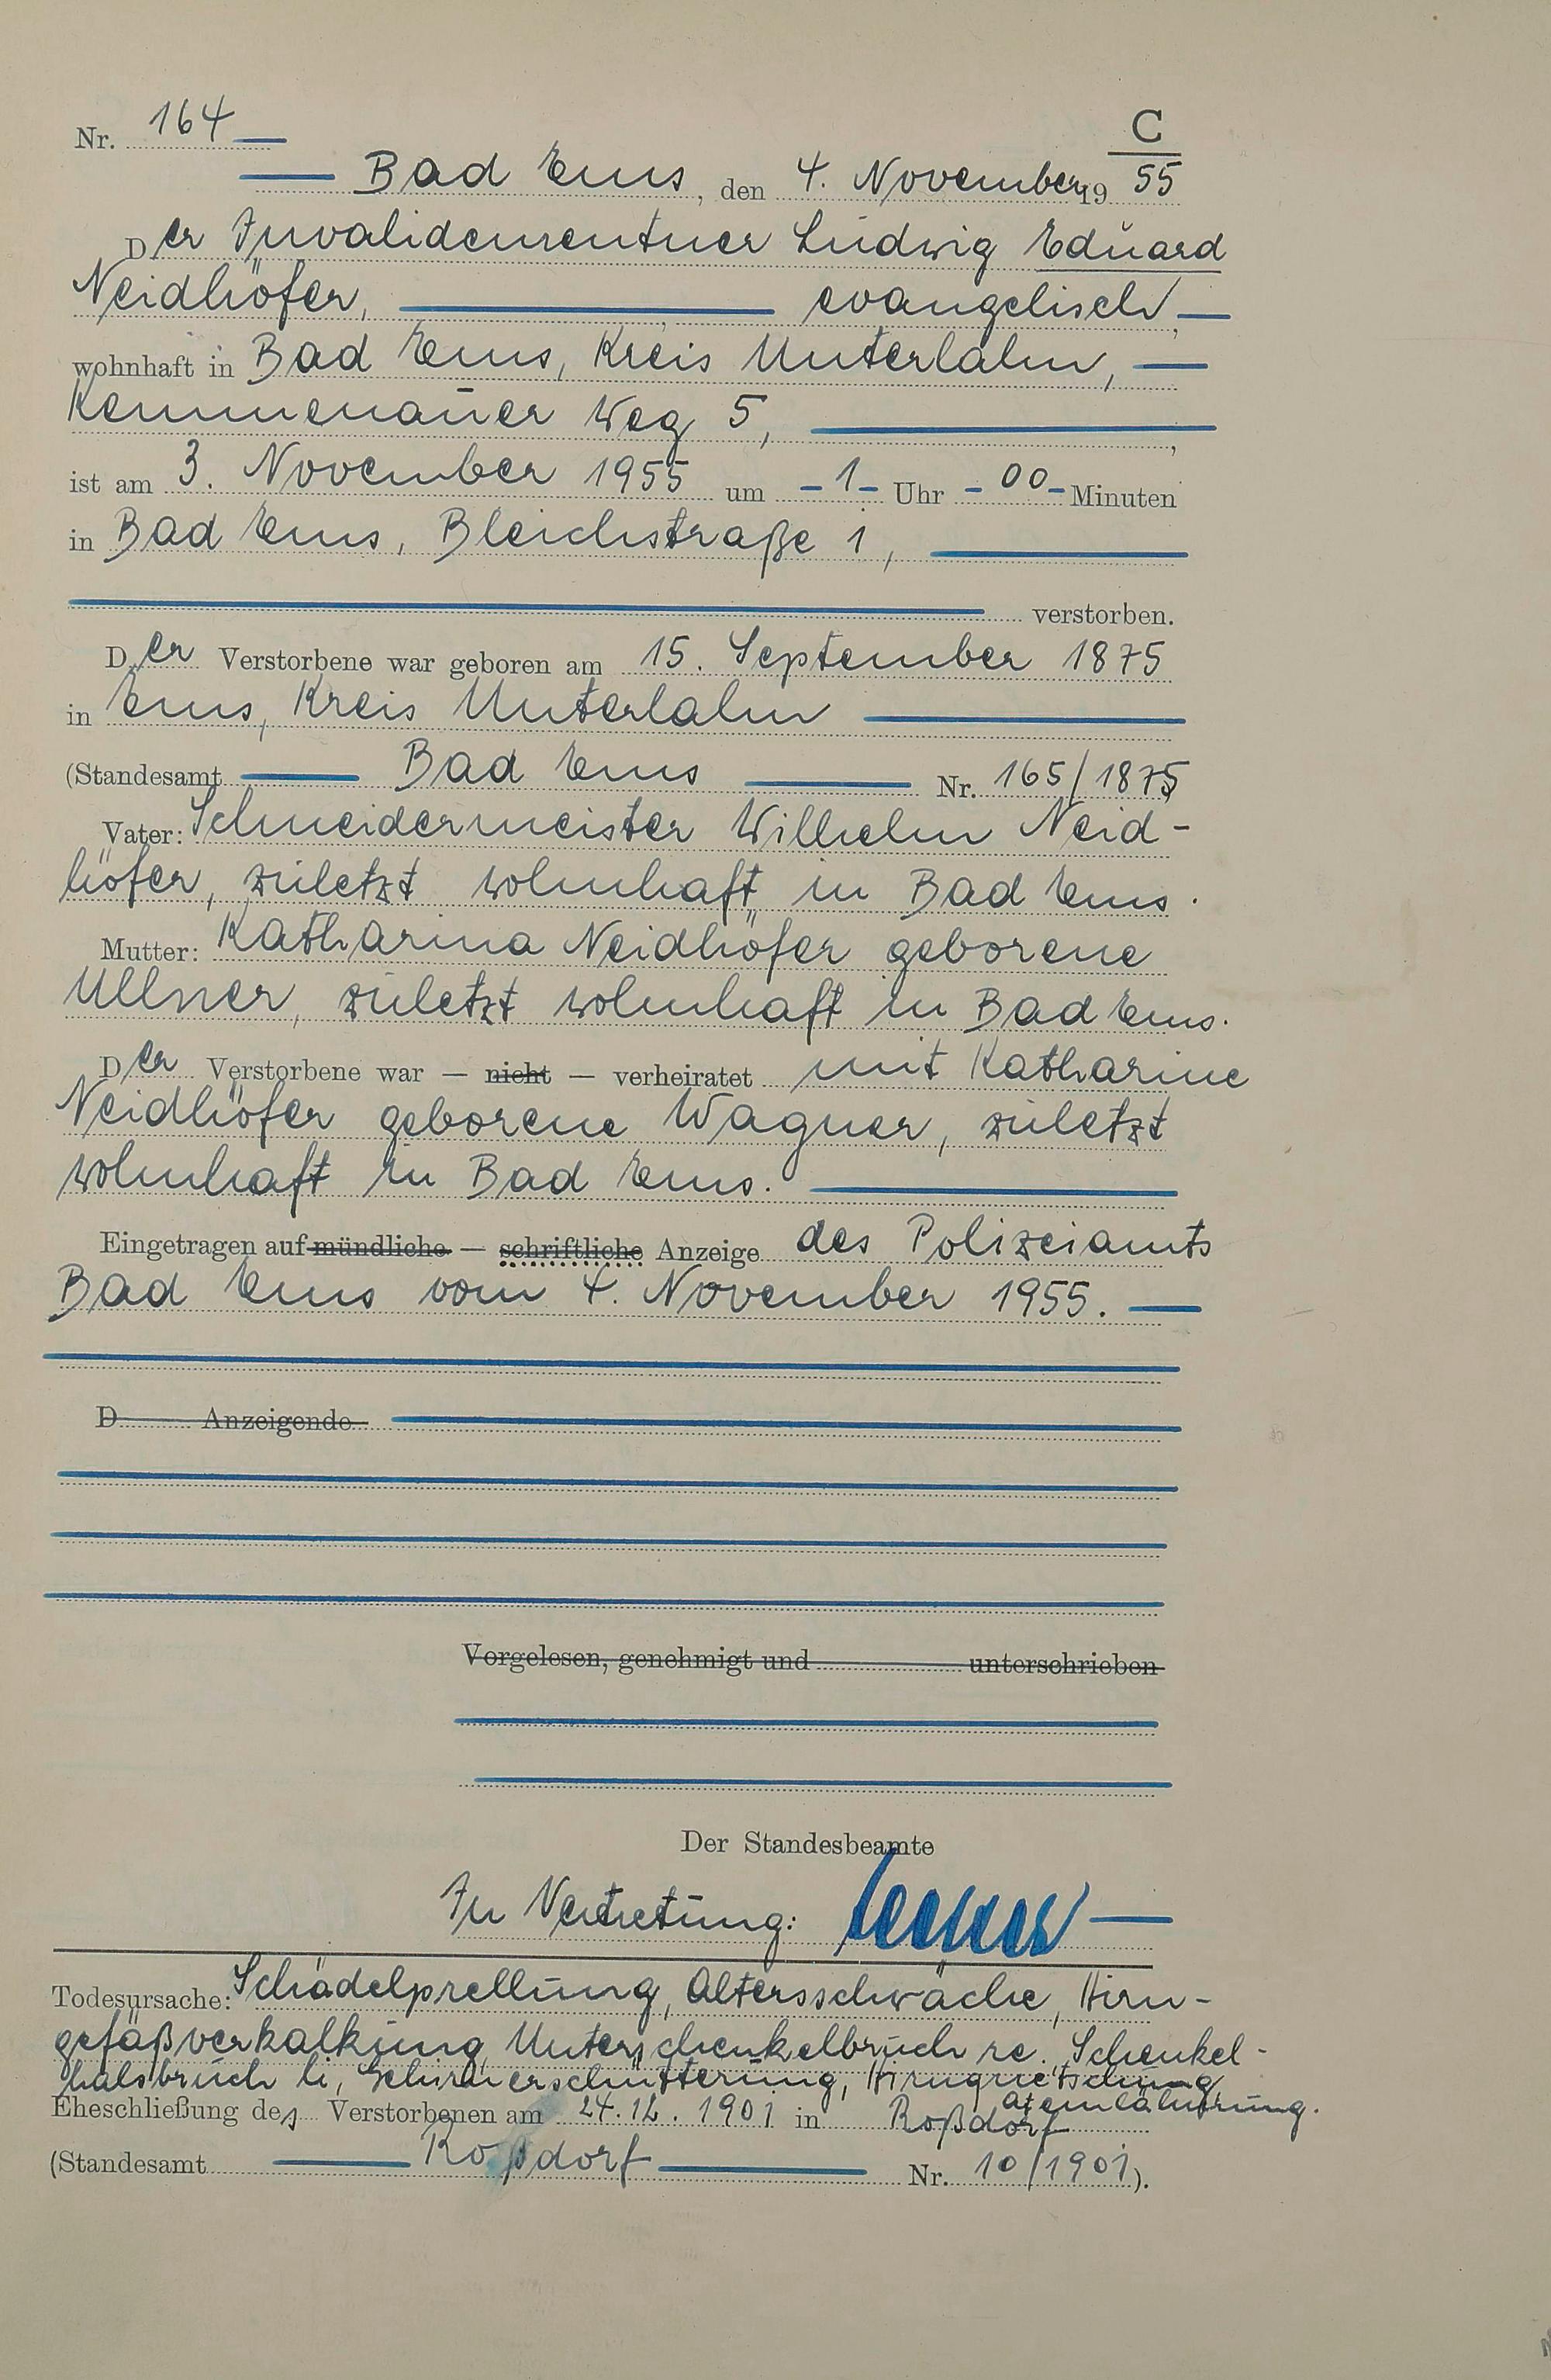 Nr. 164
C
Bad Ems, den 4. November 19 55
Der Invalidenrentner Ludwig Eduard
Neidhöfer, evangelisch,
wohnhaft in Bad Ems, Kreis Unterlahn,
Kemmenauer Weg 5,
ist am 3. November 1955 um -1- Uhr -00- Minuten
in Bad Ems, Bleichstraße 1,
verstorben.
Der Verstorbene war geboren am 15. September 1875
in Ems, Kreis Unterlahn
(Standesamt Bad Ems Nr. 165/1875
Vater: Schneidermeister Wilhelm Neid-
höfer, zuletzt wohnhaft in Bad Ems.
Mutter: Katharina Neidhöfer geborene
Ullner, zuletzt wohnhaft in Bad Ems.
Der Verstorbene war — nicht — verheiratet mit Katharine
Neidhöfer geborene Wagner, zuletzt
wohnhaft in Bad Ems.
Eingetragen auf mündliche — schriftliche Anzeige des Polizeiamts
Bad Ems vom 4. November 1955.
D Anzeigende
Vorgelesen, genehmigt und unterschrieben
Der Standesbeamte
In Vertretung:
Todesursache: Schädelprellung, Altersschwäche, Hirn-
gefäßverkalkung, Unterschenkelbruch re., Schenkel-
halsbruch li, Gehirnerschütterung, Hirnquetschung,
Atemlähmung.
Eheschließung des Verstorbenen am 24.12.1901 in Roßdorf
(Standesamt Roßdorf Nr. 10/1901).